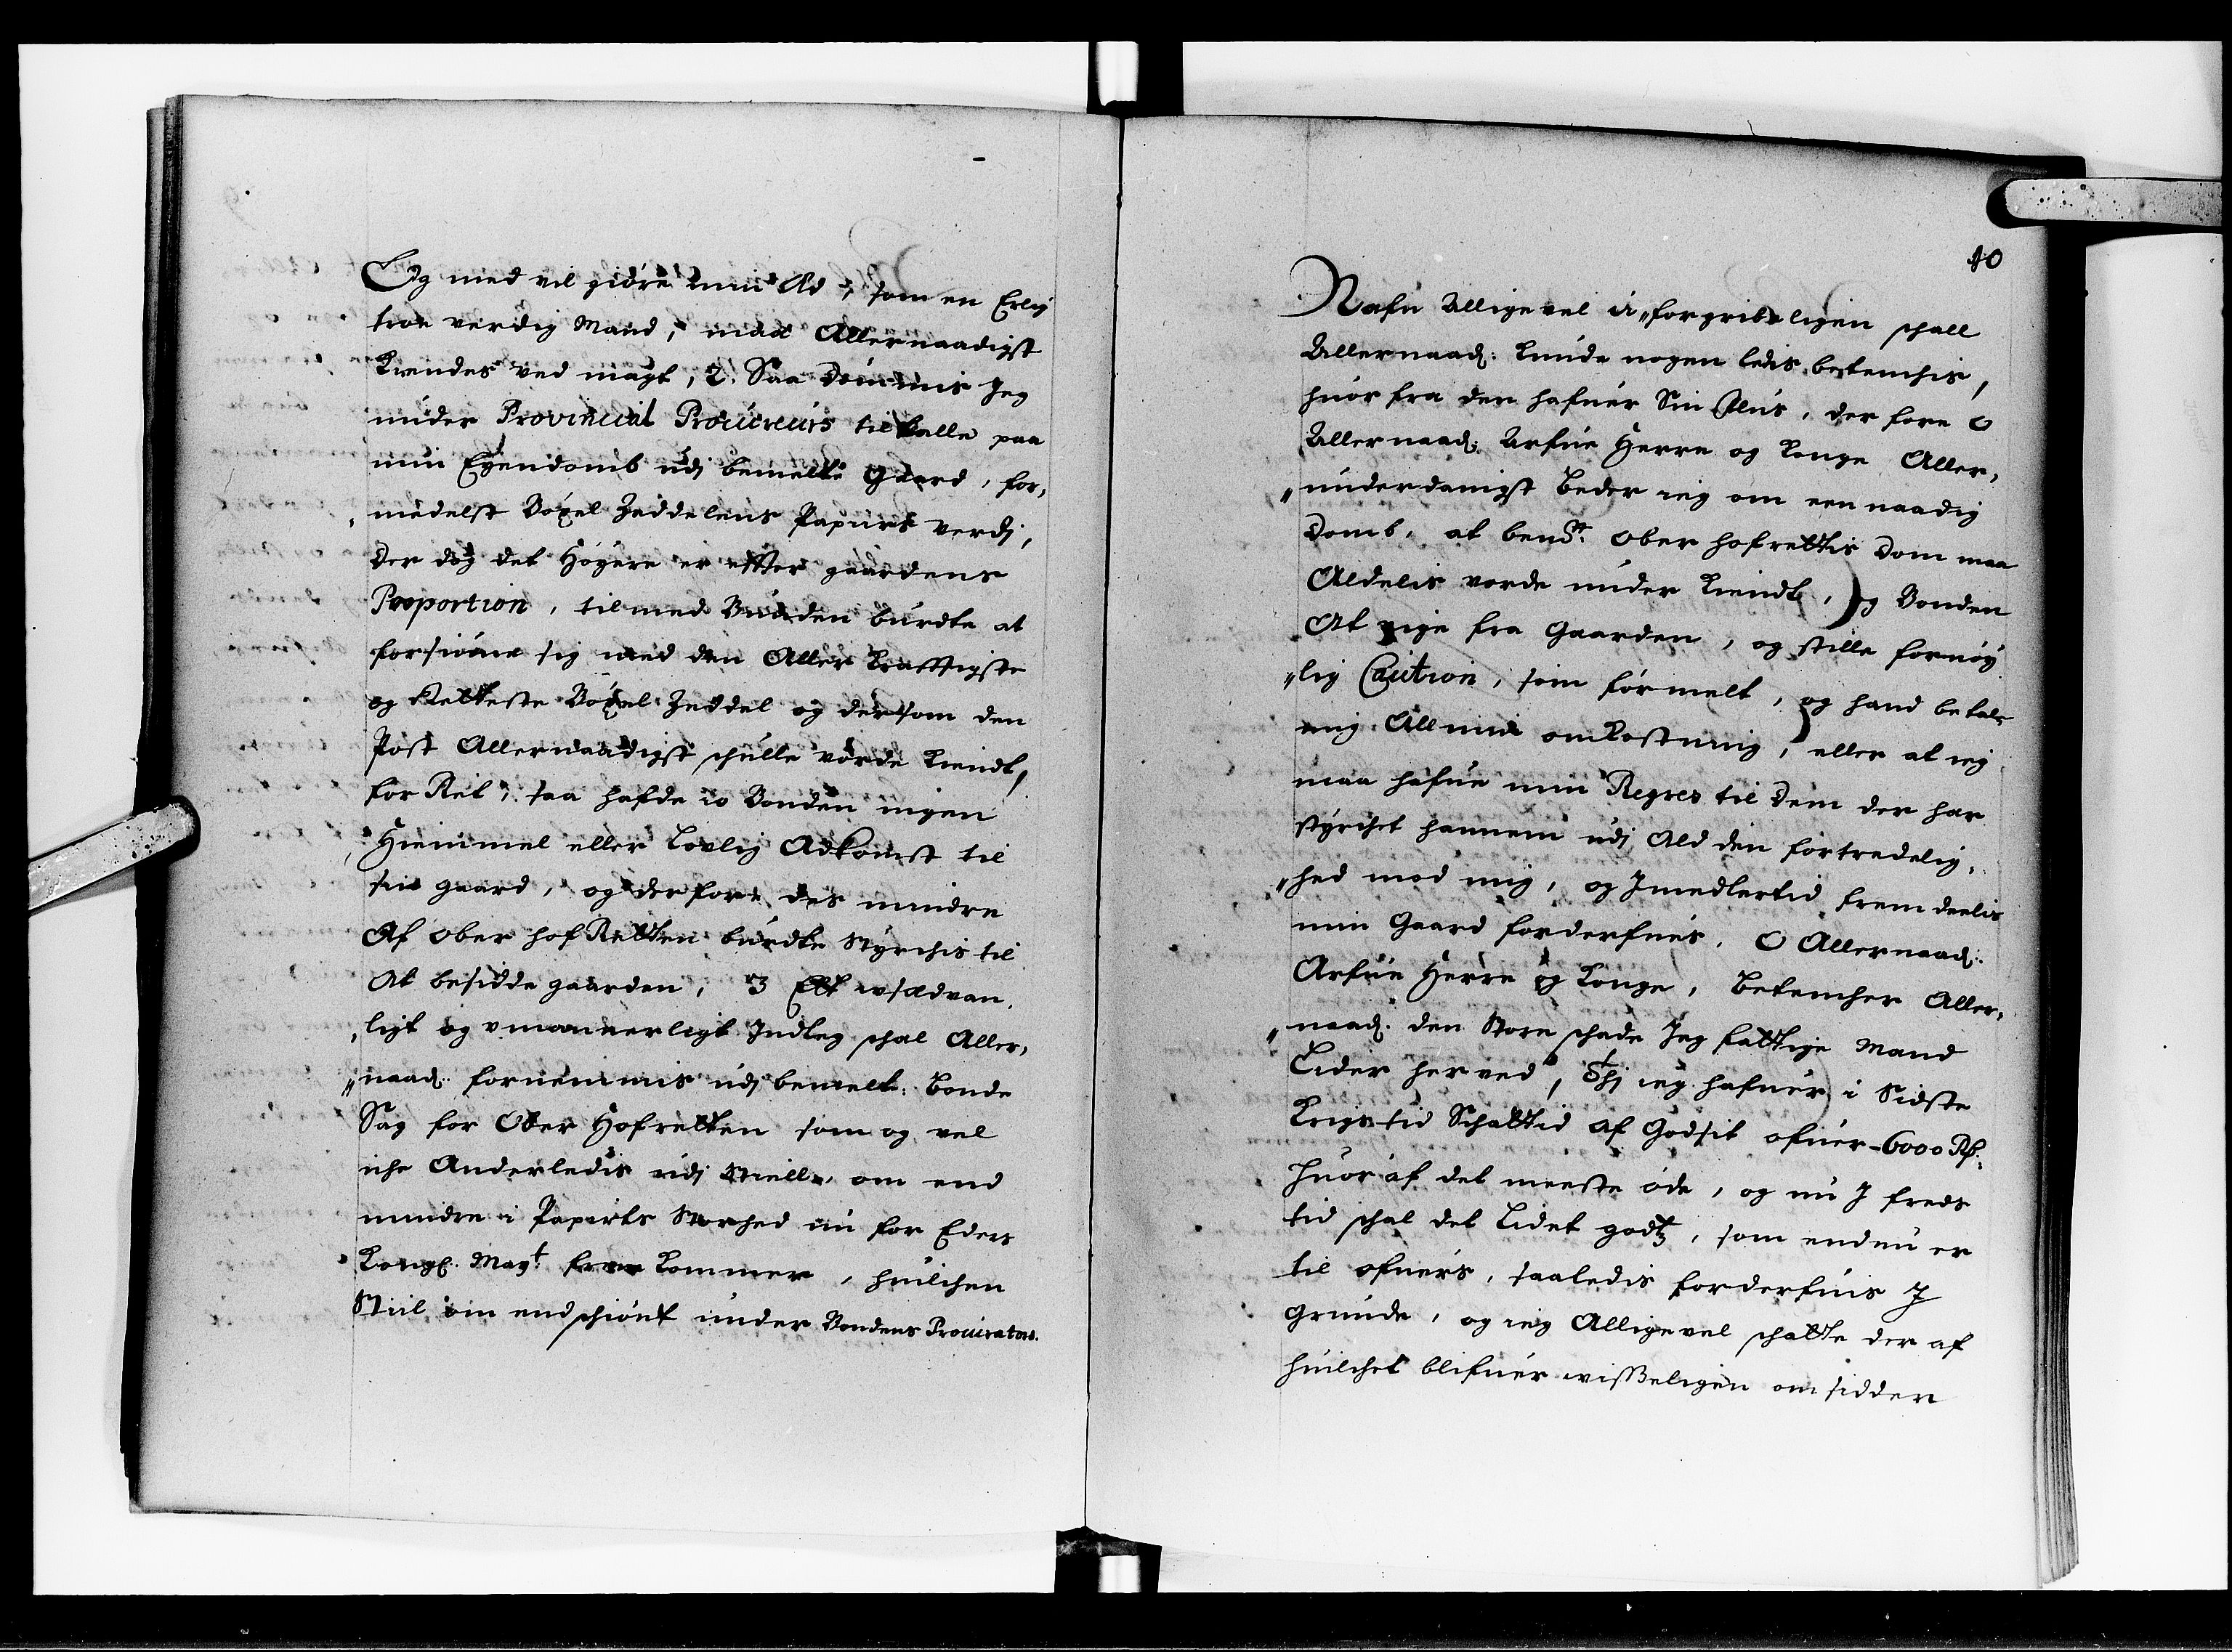 Og med vil giøre min Æd, som en Erlig
troe verdig Mand, maa Allernaadigst
Kiendes ved magt, 2. Saa dømmis Jeg
under Provincial Procureurs tiltalle paa
min Egendomb udj bemelte Gaard, for,
,, medelst Böxel Zeddelens Papiirs verdj,
der dog det Høgere er efter gaardens
Proportion, til med Bunden burdte at
forsiune sig med den Aller Krafftigste
og Retteste Böxel Zeddel og dersom den
Post Allernaadigst schulle vorde kiendt,
for Ret, saa hafde io Bonden ingen
Hiemmel eller Lovlig Adkomst til
sin gaard, og derfore des mindre
Af ober hof Retten burdte Styrchis til
At besidde gaarden, 3 Ett usædvan,
,, ligt og umannerligt Indleg schal Aller,
,, naad. fornemmis udj bemelt: Bonde
Sag for Ober Hofretten som og vel
iche Anderledis udj Stiell, om end
mindre i Papirts Storhed nu for Eders
Kongl. Mayt frem Kommer, huilchen
Stiil om endschiönt under Bondens Procurators.
10
Nafn Alligevel u,,forgribeligen schall
Allernaad. Kunde nogen ledis betenchis,
huor fra den hafuer Sin flus, der fore O
Allernaad. Arfue Herre og Konge Aller,
,, underdanigst Beder ieg om een naadig
Domb, at bemte. Ober hofrettis Dom maa
Aldelis vorde under kiendt, og Bonden
At vige fra Gaarden, og stille fornöy
,, lig Caution, som för melt, og hand betale
mig All min omkostning, eller at ieg
maa hafue min Regres til dem der har
styrchet hannem udj Ald den fortredelig,
,, hed mod mig, og Jmedlertid frem deelis
min Gaard forderfues. O Allernaad.
Arfue Herre og Konge, Betencher Aller,
,, naad. den Store schade Jeg fattige Mand
Lider herved, Thj ieg hafuer i Sidste
Krigs tid Schattid af Godsit ofuer 6000 Rd.
huor af det meeste öde, og nu J freds
tid schal det Lidet godtz, som endnu er
til ofuers, saaledis forderfuis J
Grunde, og ieg Alligevel schatte der af
huilchet blifuer wisseligen om sidder